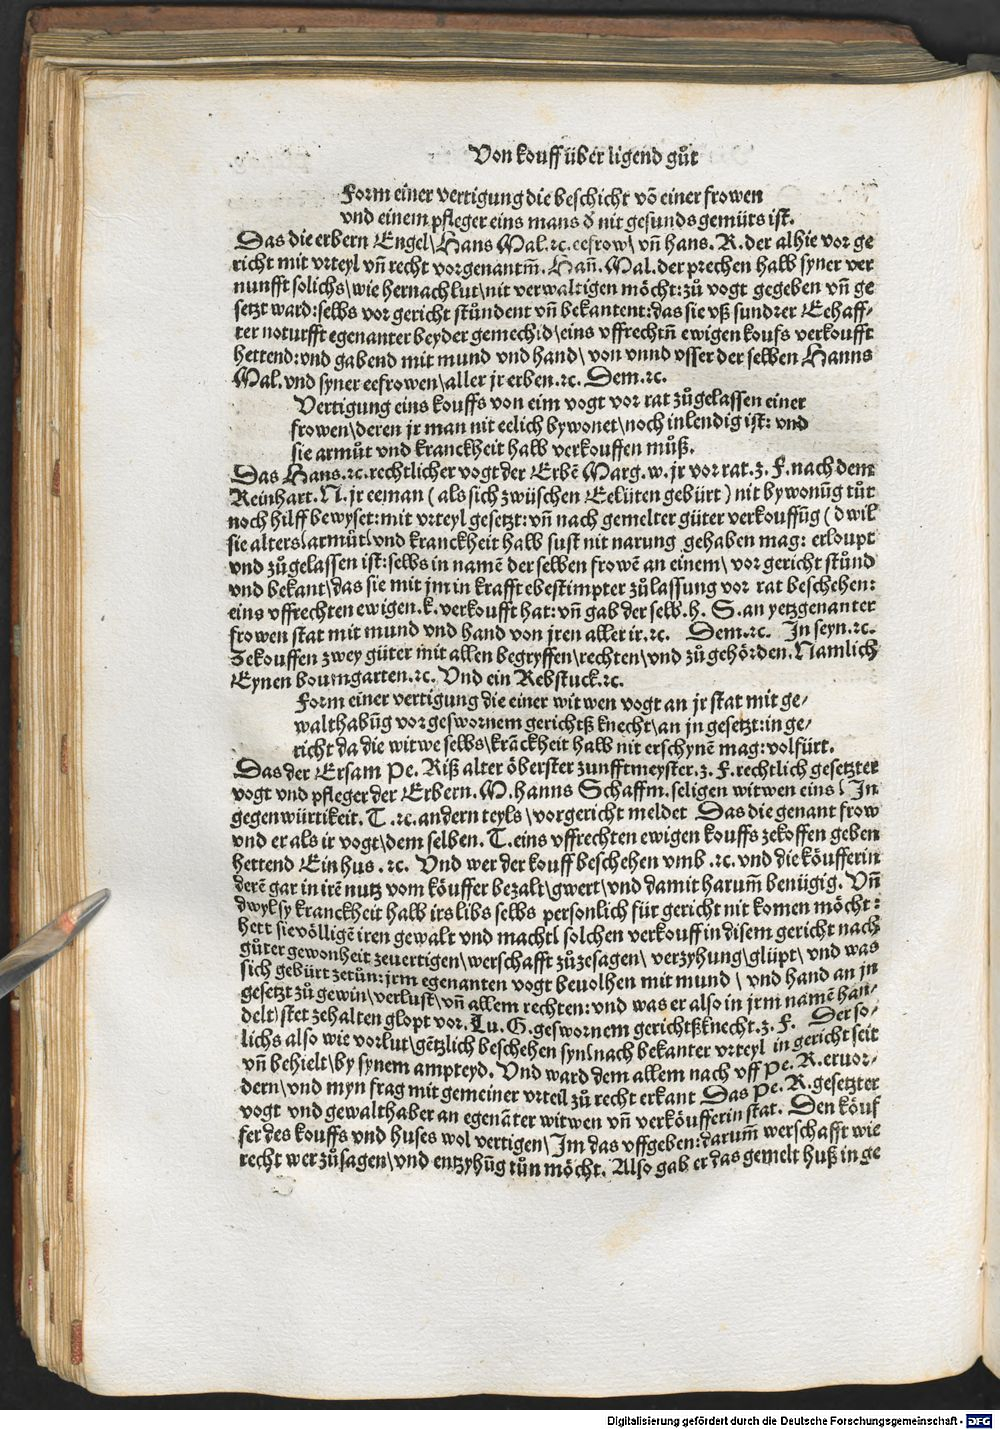 Von kouff über ligend gůt
Form einer vertigung die beschicht võ einer frowen
vnd einem pfleger eins mans d̕ nit gesunds gemüts ist.
Das die erbern Engel\ Hans Mal.ꝛc.eefrow\ vñ hans. R.der alhie vor ge
richt mit vrteyl vñ recht vorgenantm̃. Hañ. Mal.der prechen halb syner ver
nunfft solichs\ wie hernach lut\ nit verwaltigen möcht: zů vogt gegeben vñ ge
setzt ward: selbs vor gericht stůndent vñ bekantent: das sie vß sundrer Eehaff⸗
ter noturfft egenanter beyder gemechid\ eins vffrechtñ ewigen koufs verkoufft
hettend: vnd gabend mit mund vnd hand\ von vnnd vsser der selben Hanns
Mal.vnd syner eefrowen\ aller jr erben.ꝛc. Dem.ꝛc.
Vertigung eins kouffs von eim vogt vor rat zůgelassen einer
frowen\ deren jr man nit eelich bywonet\ noch inlendig ist: vnd
sie armůt vnd kranckheit halb verkouffen můß.
Das Hans.ꝛc.rechtlicher vogt der Erbẽ Marg.w.jr vor rat.z. F.nach dem
Reinhart. N.jr eeman ( als sich zwüschen Eelüten gebürt ) nit bywonũg tůt
noch hilff bewyset: mit vrteyl gesetzt: vñ nach gemelter güter verkouffũg ( d wil
sie alters\ armůt\ vnd kranckheit halb sust nit narung gehaben mag: erloupt
vnd zůgelassen ist: selbs in namẽ der selben frowẽ an einem\ vor gericht stůnd
vnd bekant\ das sie mit jm in krafft ebestimpter zůlassung vor rat beschehen:
eins vffrechten ewigen.k.verkoufft hat: vñ gab der selb.h. S.an yetzgenanter
frowen stat mit mund vnd hand von jren aller ir.ꝛc. Dem.ꝛc. In seyn.ꝛc.
Zekouffen zwey güter mit allen begryffen\ rechten\ vnd zůgehörden. Namlich
Eynen boumgarten.ꝛc. Vnd ein Rebstuck.ꝛc.
Form einer vertigung die einer witwen vogt an jr stat mit ge⸗
walthabũg vor geswornem gerichtß knecht\ an jn gesetzt: in ge⸗
richt da die witwe selbs\ krãckheit halb nit erschynẽ mag: volfürt.
Das der Ersam Pe. Riß alter öberster zunfftmeyster.z. F.rechtlich gesetzter
vogt vnd pfleger der Erbern. M.hanns Schaffm.seligen witwen eins\ In
gegenwürtikeit. T.ꝛc.andern teyls\ vor gericht meldet Das die genant frow
vnd er als ir vogt\ dem selben. T.eins vffrechten ewigen kouffs zekoffen geben
hettend Ein hus.ꝛc. Vnd wer der kouff beschehen vmb.ꝛc.vnd die köufferin
derẽ gar in irẽ nutz vom köuffer bezalt\ gwert\ vnd damit harum̃ benügig. Vñ
dwyl sy kranckheit halb irs libs selbs personlich für gericht nit komen möcht:
hett sie völligẽ iren gewalt vnd macht\ solchen verkouff in disem gericht nach
gůter gewonheit zeuertigen\ werschafft zůzesagen\ verzyhung\ glüpt\ vnd was
sich gebürt zetůn: jrm egenanten vogt beuolhen mit mund\ vnd hand an jn
gesetzt zů gewin\ verlust\ vñ allem rechten: vnd was er also in jrm namẽ han⸗
delt\ stet zehalten glopt vor. Lu. G.geswornem gerichtßknecht.z. F. Der so⸗
lichs also wie vorlut\ gẽtzlich beschehen syn\ nach bekanter vrteyl in gericht seit
vñ behielt\ by synem ampteyd. Vnd ward dem allem nach vff Pe. R.eruor⸗
dern\ vnd myn frag mit gemeiner vrteil zů recht erkant Das Pe. R.gesetzter
vogt vnd gewalthaber an egenãter witwen vñ verköufferin stat. Den köuf
fer des kouffs vnd huses wol vertigen\ Im das vffgeben: darum̃ werschafft wie
recht wer zůsagen\ vnd entzyhũg tůn möcht. Also gab er das gemelt huß in ge
Digitalisierung gefördert durch die Deutsche Forschungsgemeinschaft - DFG